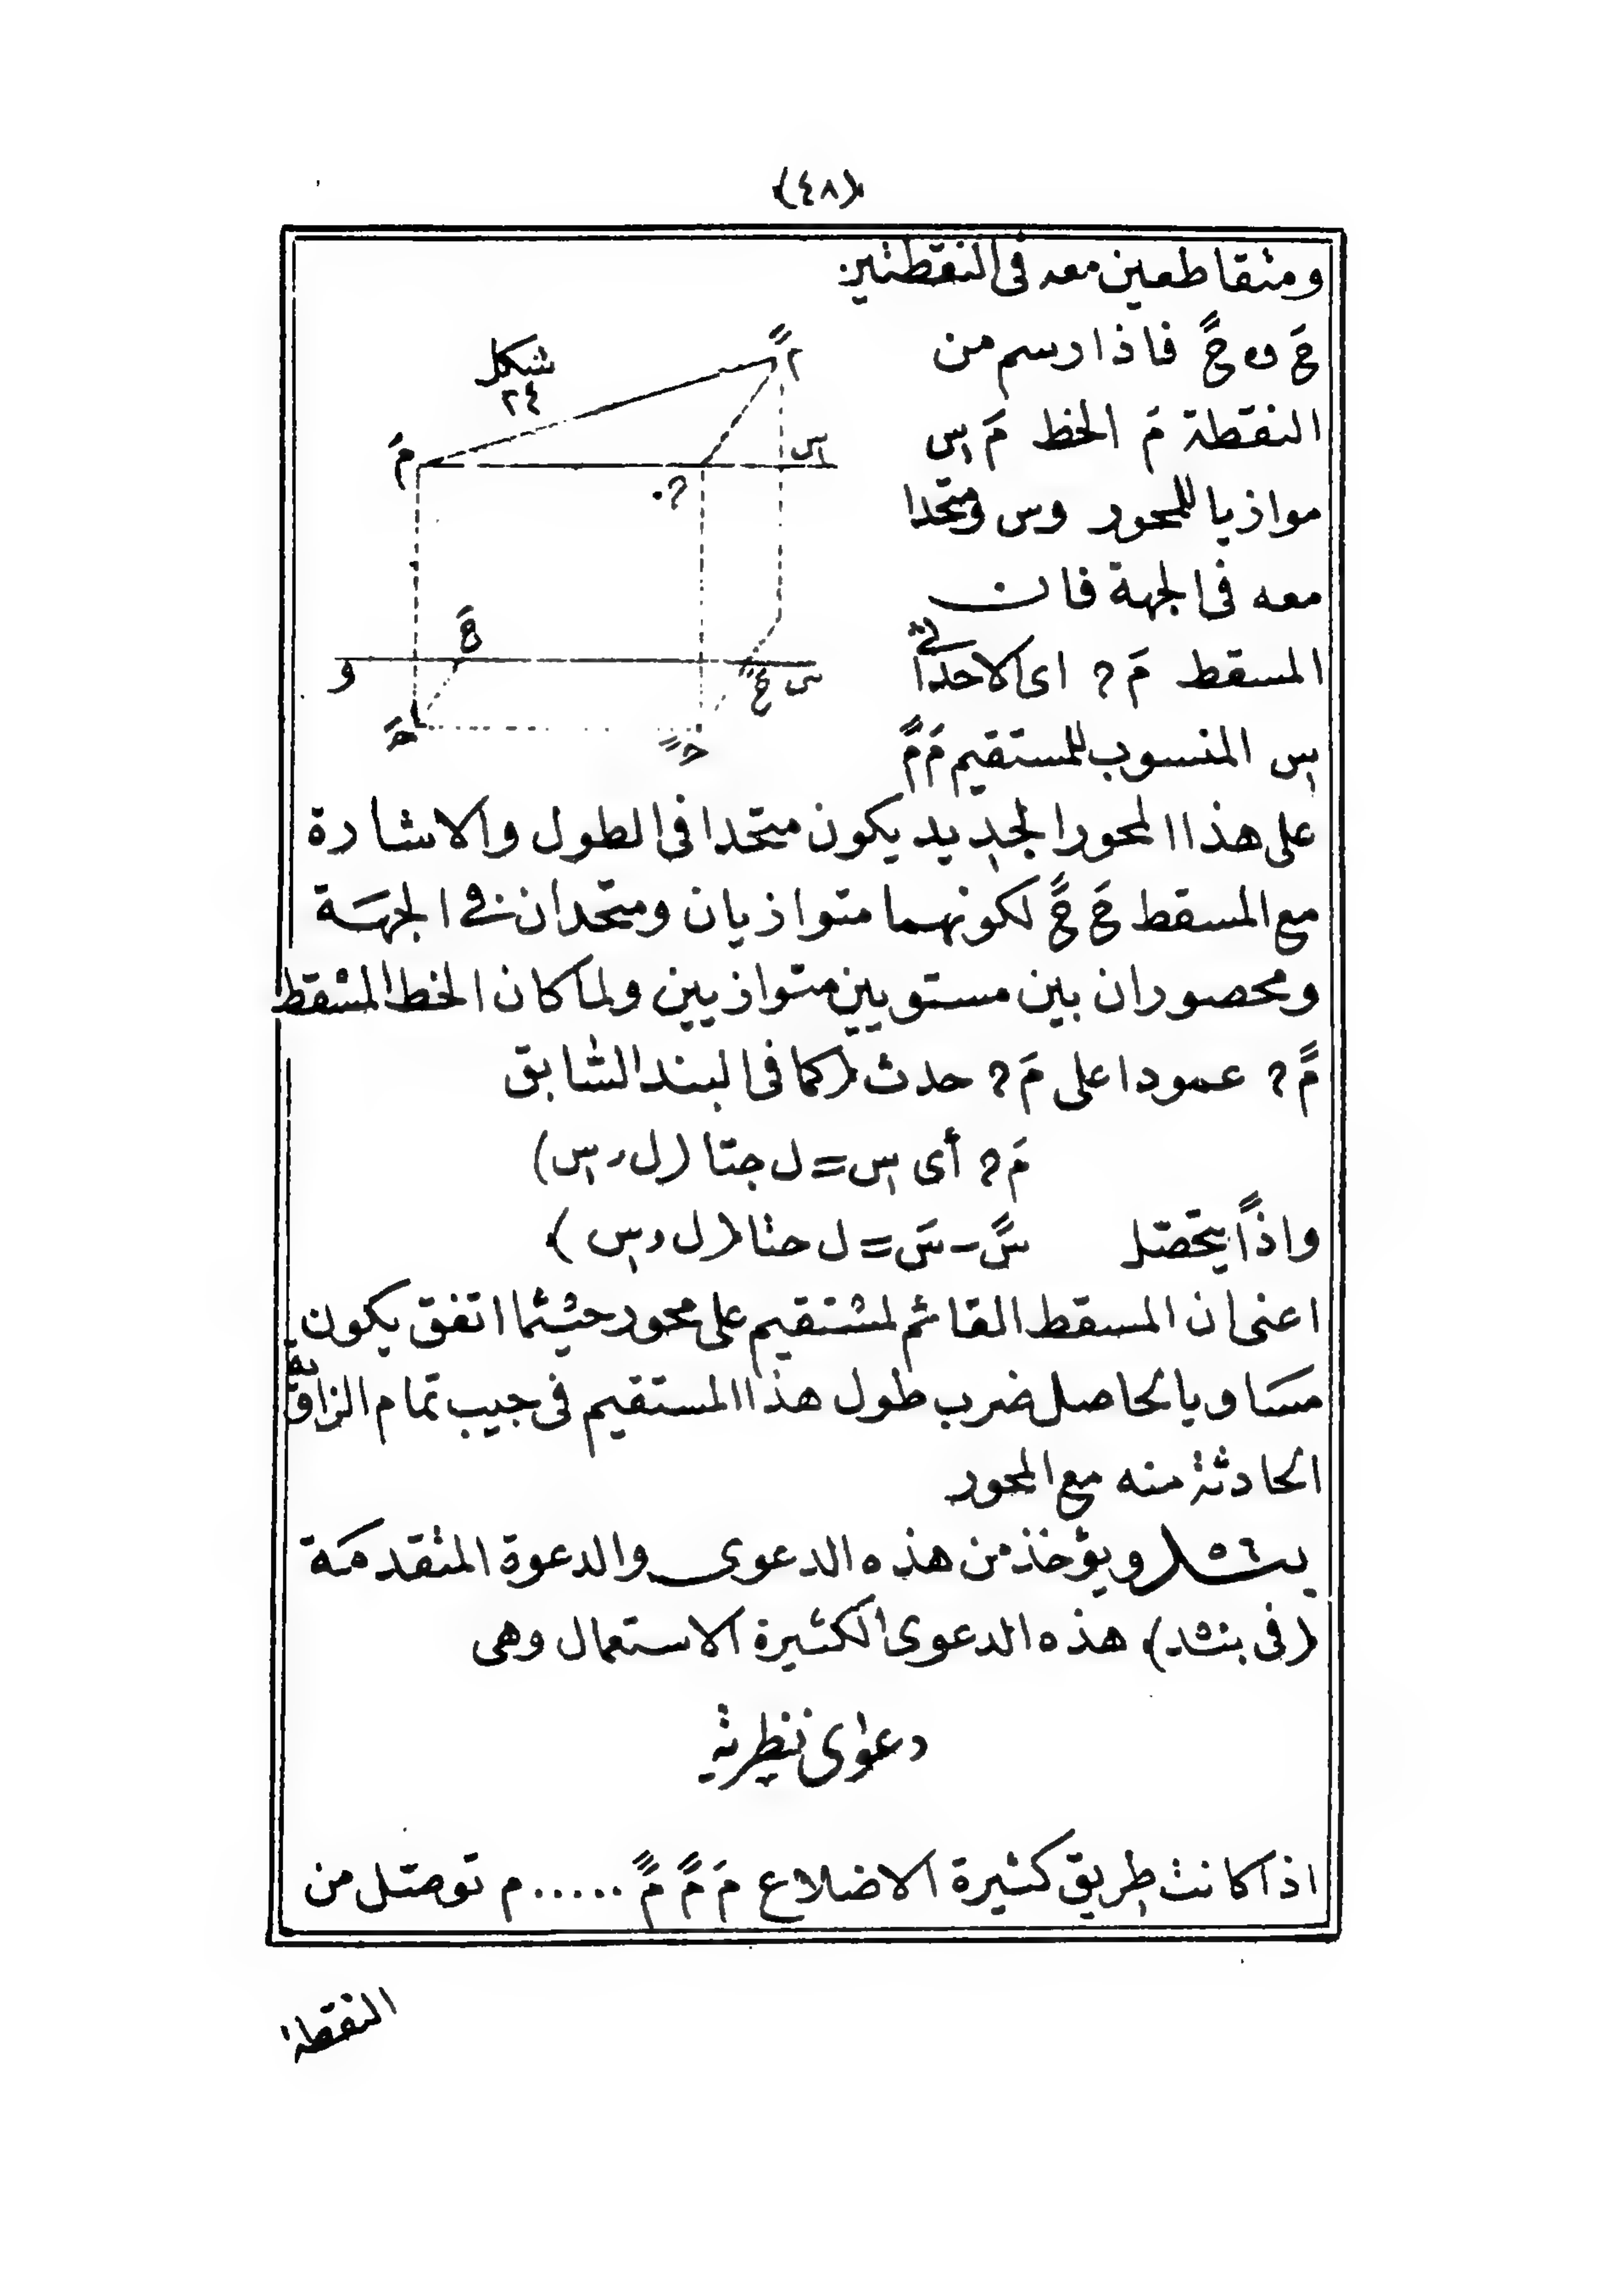 (٤٨)
ومتقاطعين معه فى النقطتين
حَ و حً فاذا رسم من
النقطة مَ الخط مَ س
موازيا للمحور وس ومتحدا
معه فى الجهة فان
المسقط مَ ? اى الاحداثى
س المنسوب للمستقيم مَ مً
شكل
٢٤
مً
مَ
س
?
حَ
و
حً
س
حَ
حً
على هذا المحور الجديد يكون متحدا فى الطول والاشارة
مع المسقط حَ حً لكونهما متوازيان ومتحدان فى الجهة
ومحصوران بين مستويين متوازيين ولما كان الخط المسقط
مً ? عمودا على مَ ? حدث (كما فى البند السابق
مَ ? أى س = ل جتا (ل, س)
واذاً يتحصل سً - سَ = ل حتا (ل, س)
اعنى ان المسقط القائم لمستقيم على محور حيثما اتفق يكون
مساويا لحاصل ضرب طول هذا المستقيم فى جيب تمام الزاوية
الحادثة منه مع المحور
٥٦ ويؤخذ من هذه الدعوى والدعوة المتقدمة
(فى بند) هذه الدعوى الكثيرة الاستعمال وهى
دعوى نظرية
اذا كانت طريق كثيرة الاضلاع مَ مً مً ..... م توصل من
النقطة